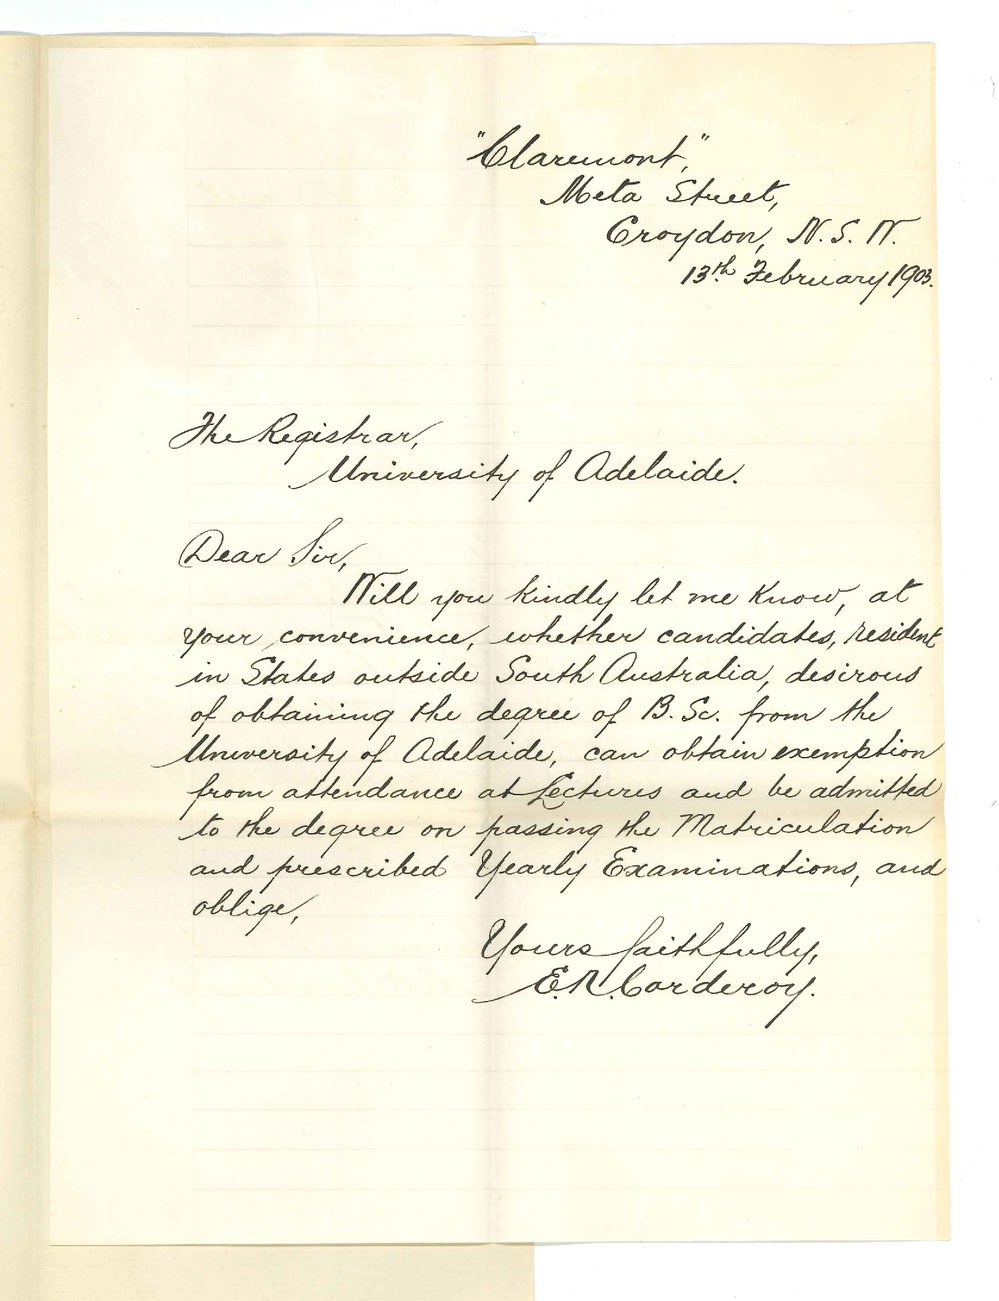 "Claremont,"
Meta Street,
Croydon, N.S.W.
13th February 1903.
The Registrar,
University of Adelaide.
Dear Sir,
Will you kindly let me know, at
your convenience, whether candidates, resident
in States outside South Australia, desirous
of obtaining the degree of B.Sc. from the
University of Adelaide, can obtain exemption
from attendance at Lectures and be admitted
to the degree on passing the Matriculation
and prescribed Yearly Examinations, and
oblige,
Yours faithfully,
E.R. Corderoy.